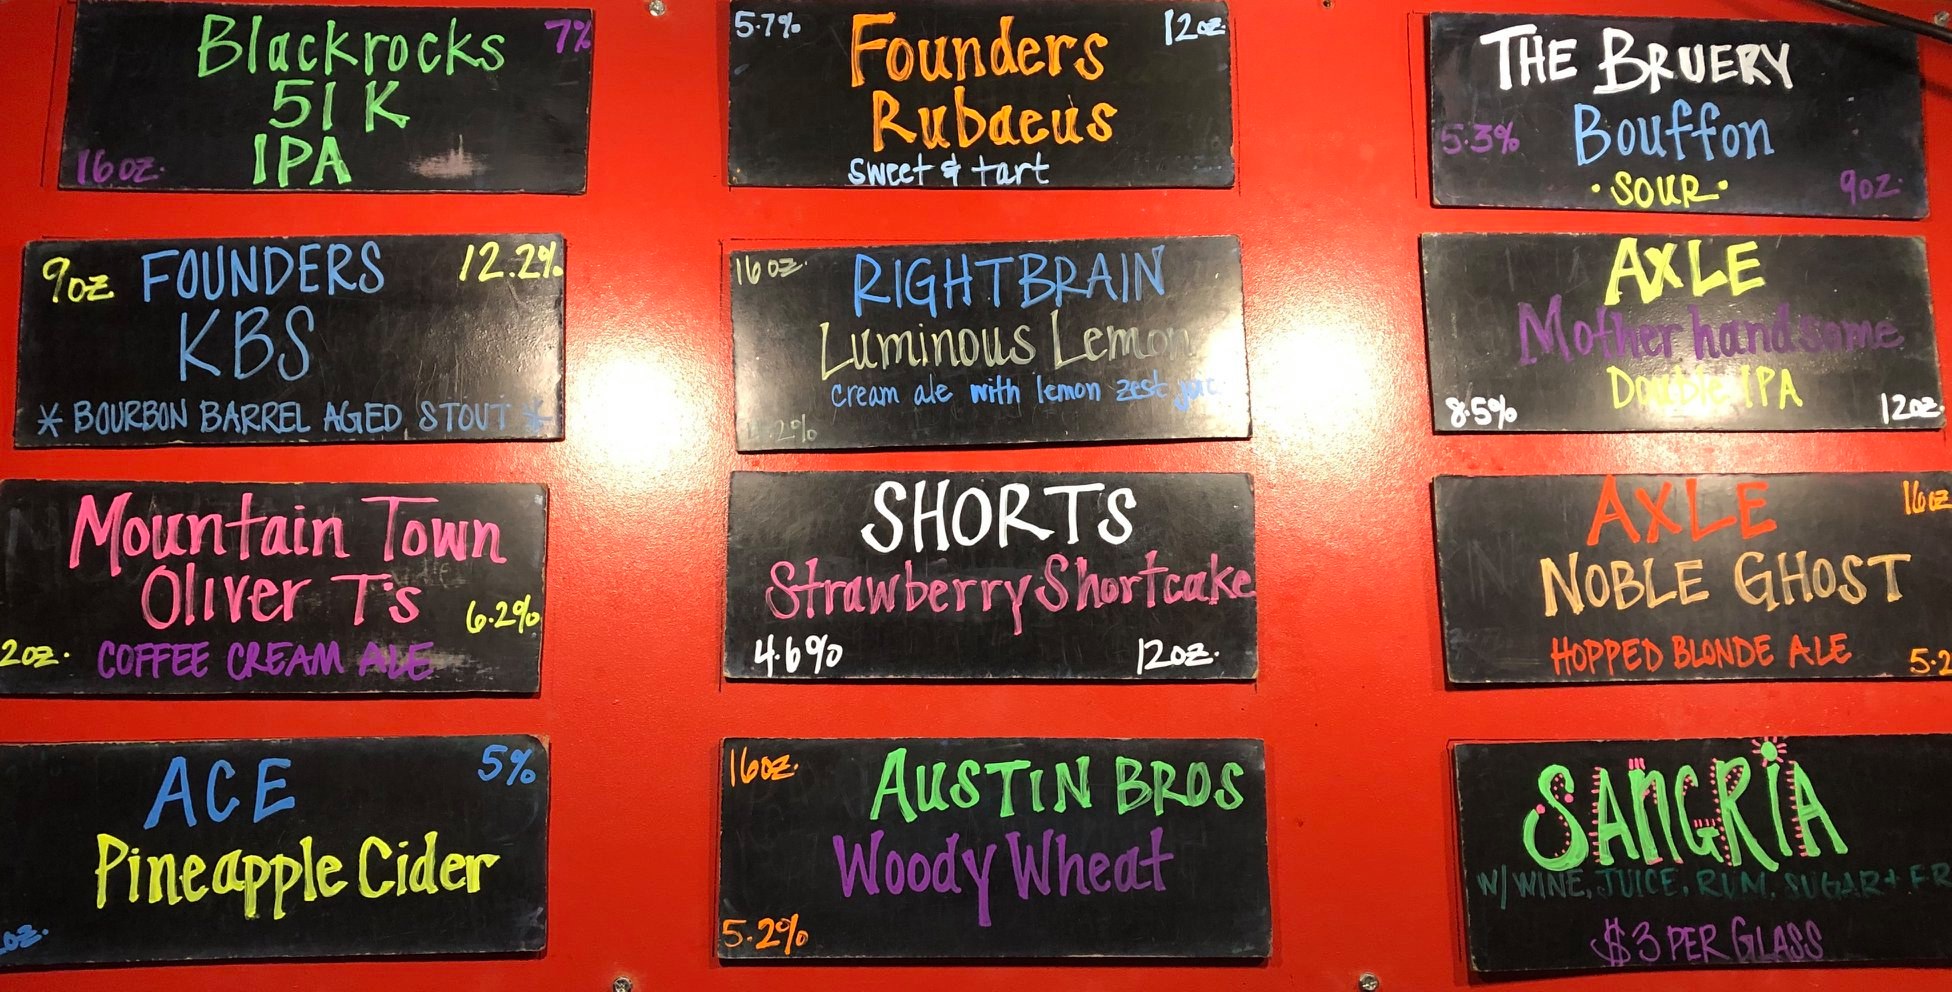 Blackrocks 7%
51K
16oz. IPA
5.7% Founders 12oz.
Rubaeus
sweet & tart
THE BRUERY
5.3% Bouffon
•SOUR• 9oz.
9oz FOUNDERS 12.2%
KBS
* BOURBON BARREL AGED STOUT *
16oz. RIGHTBRAIN
Luminous Lemon
cream ale with lemon zest
AXLE
Mother handsome
Double IPA
8.5% 12oz.
Mountain Town
Oliver T's 6.2%
2oz. COFFEE CREAM ALE
SHORTS
Strawberry Shortcake
4.6% 12oz.
AXLE 16oz
NOBLE GHOST
HOPPED BLONDE ALE 5.2
ACE 5%
Pineapple Cider
oz.
16oz. AUSTIN BROS
Woody Wheat
5.2%
SANGRIA
W/ WINE, JUICE, RUM, SUGAR + FR
$3 PER GLASS